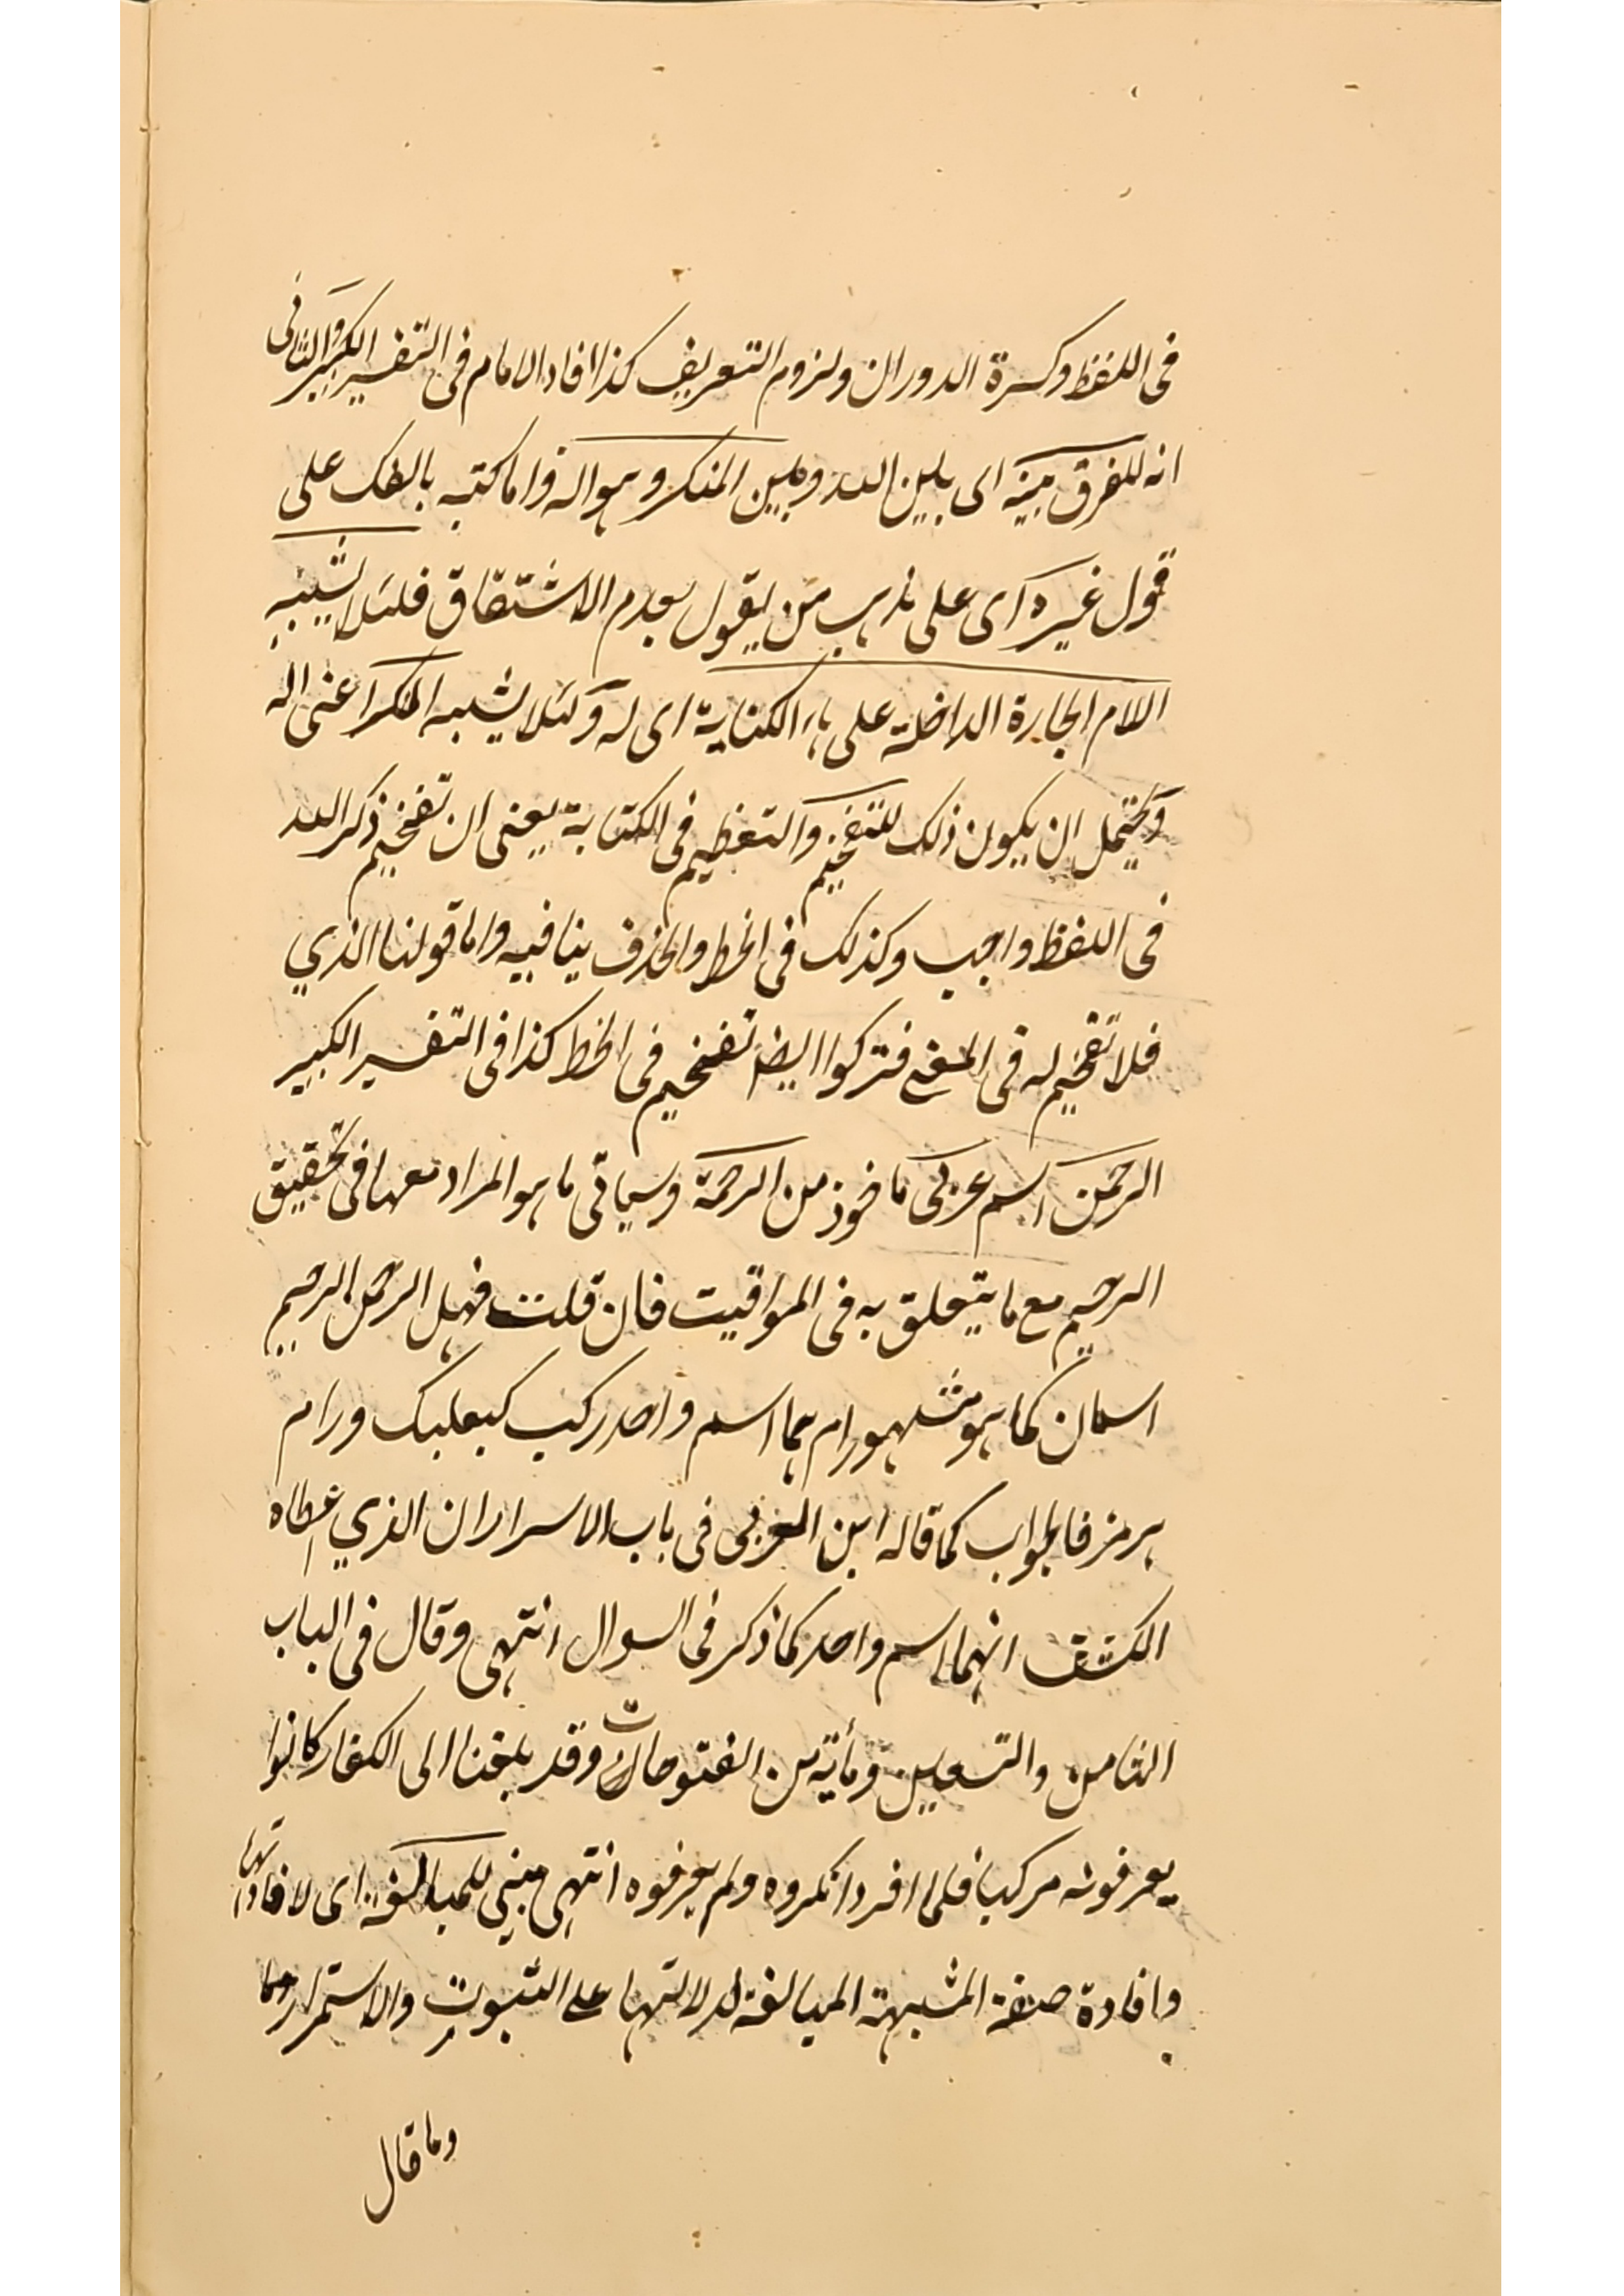 فى اللفظ وكسرة الدوران ولزوم التعريف كذا افاد الامام فى التفسير الكبير والثانى
انه للفرق بينه اى بين الله وبين المنكر وهو اله واما كتبه بالفك على
قول غيره اى على مذهب من يقول بعدم الاشتقاق فلئلا يشبه
اللام الجارة الداخلة على هاء الكناية اى له ولئلا يشبه المنكر اعنى اله
ويحتمل ان يكون ذلك للتفخيم والتعظيم فى الكتابة يعنى ان تفخيم ذكر الله
فى اللفظ واجب وكذلك فى الخط والحذف ينافيه واما قولنا الذي
فلا تفخيم له فى المعنى فتركوا ايضا تفخيم فى الخط كذا فى التفسير الكبير
الرحمن اسم عربى ماخوذ من الرحمة وسياتى ما هو المراد معها فى تحقيق
الرحيم مع ما يتعلق به فى المواقيت فان قلت فهل الرحمن الرحيم
اسمان كما هو مشهور ام هما اسم واحد ركب كبعلبك ورام
هرمز فالجواب كما قاله ابن العربى فى باب الاسرار ان الذي اعطاه
الكشف انهما اسم واحد كما ذكر فى السوال انتهى وقال فى الباب
الثامن والتسعين ومأية من الفتوحات وقد بلغنا الى الكفار كانوا
يعرفونه مركبا فلما افرد انكروه ولم يعرفوه انتهى مبنى للمبالغة اى لافادتها
وافادة صفة المشبهة المبالغة لدلالتها على الثبوت والاستمرار
وما قال